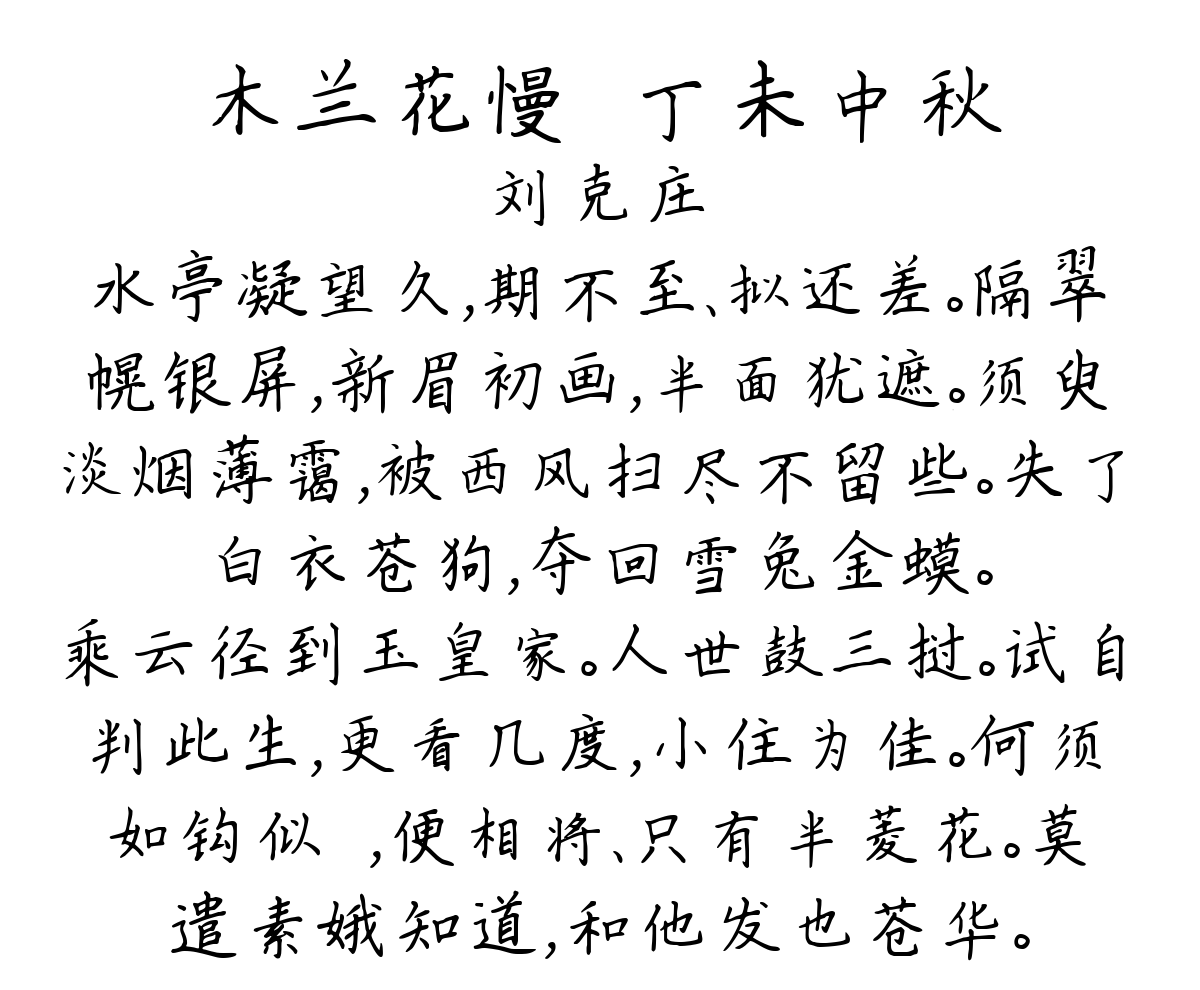 木兰花慢 丁未中秋
刘克庄
水亭凝望久,期不至、拟还差。隔翠
幌银屏,新眉初画,半面犹遮。须臾
淡烟薄霭,被西风扫尽不留些。失了
白衣苍狗,夺回雪兔金蟆。
乘云径到玉皇家。人世鼓三挝。试自
判此生,更看几度,小住为佳。何须
如钩似 ,便相将、只有半菱花。莫
遣素娥知道,和他发也苍华。